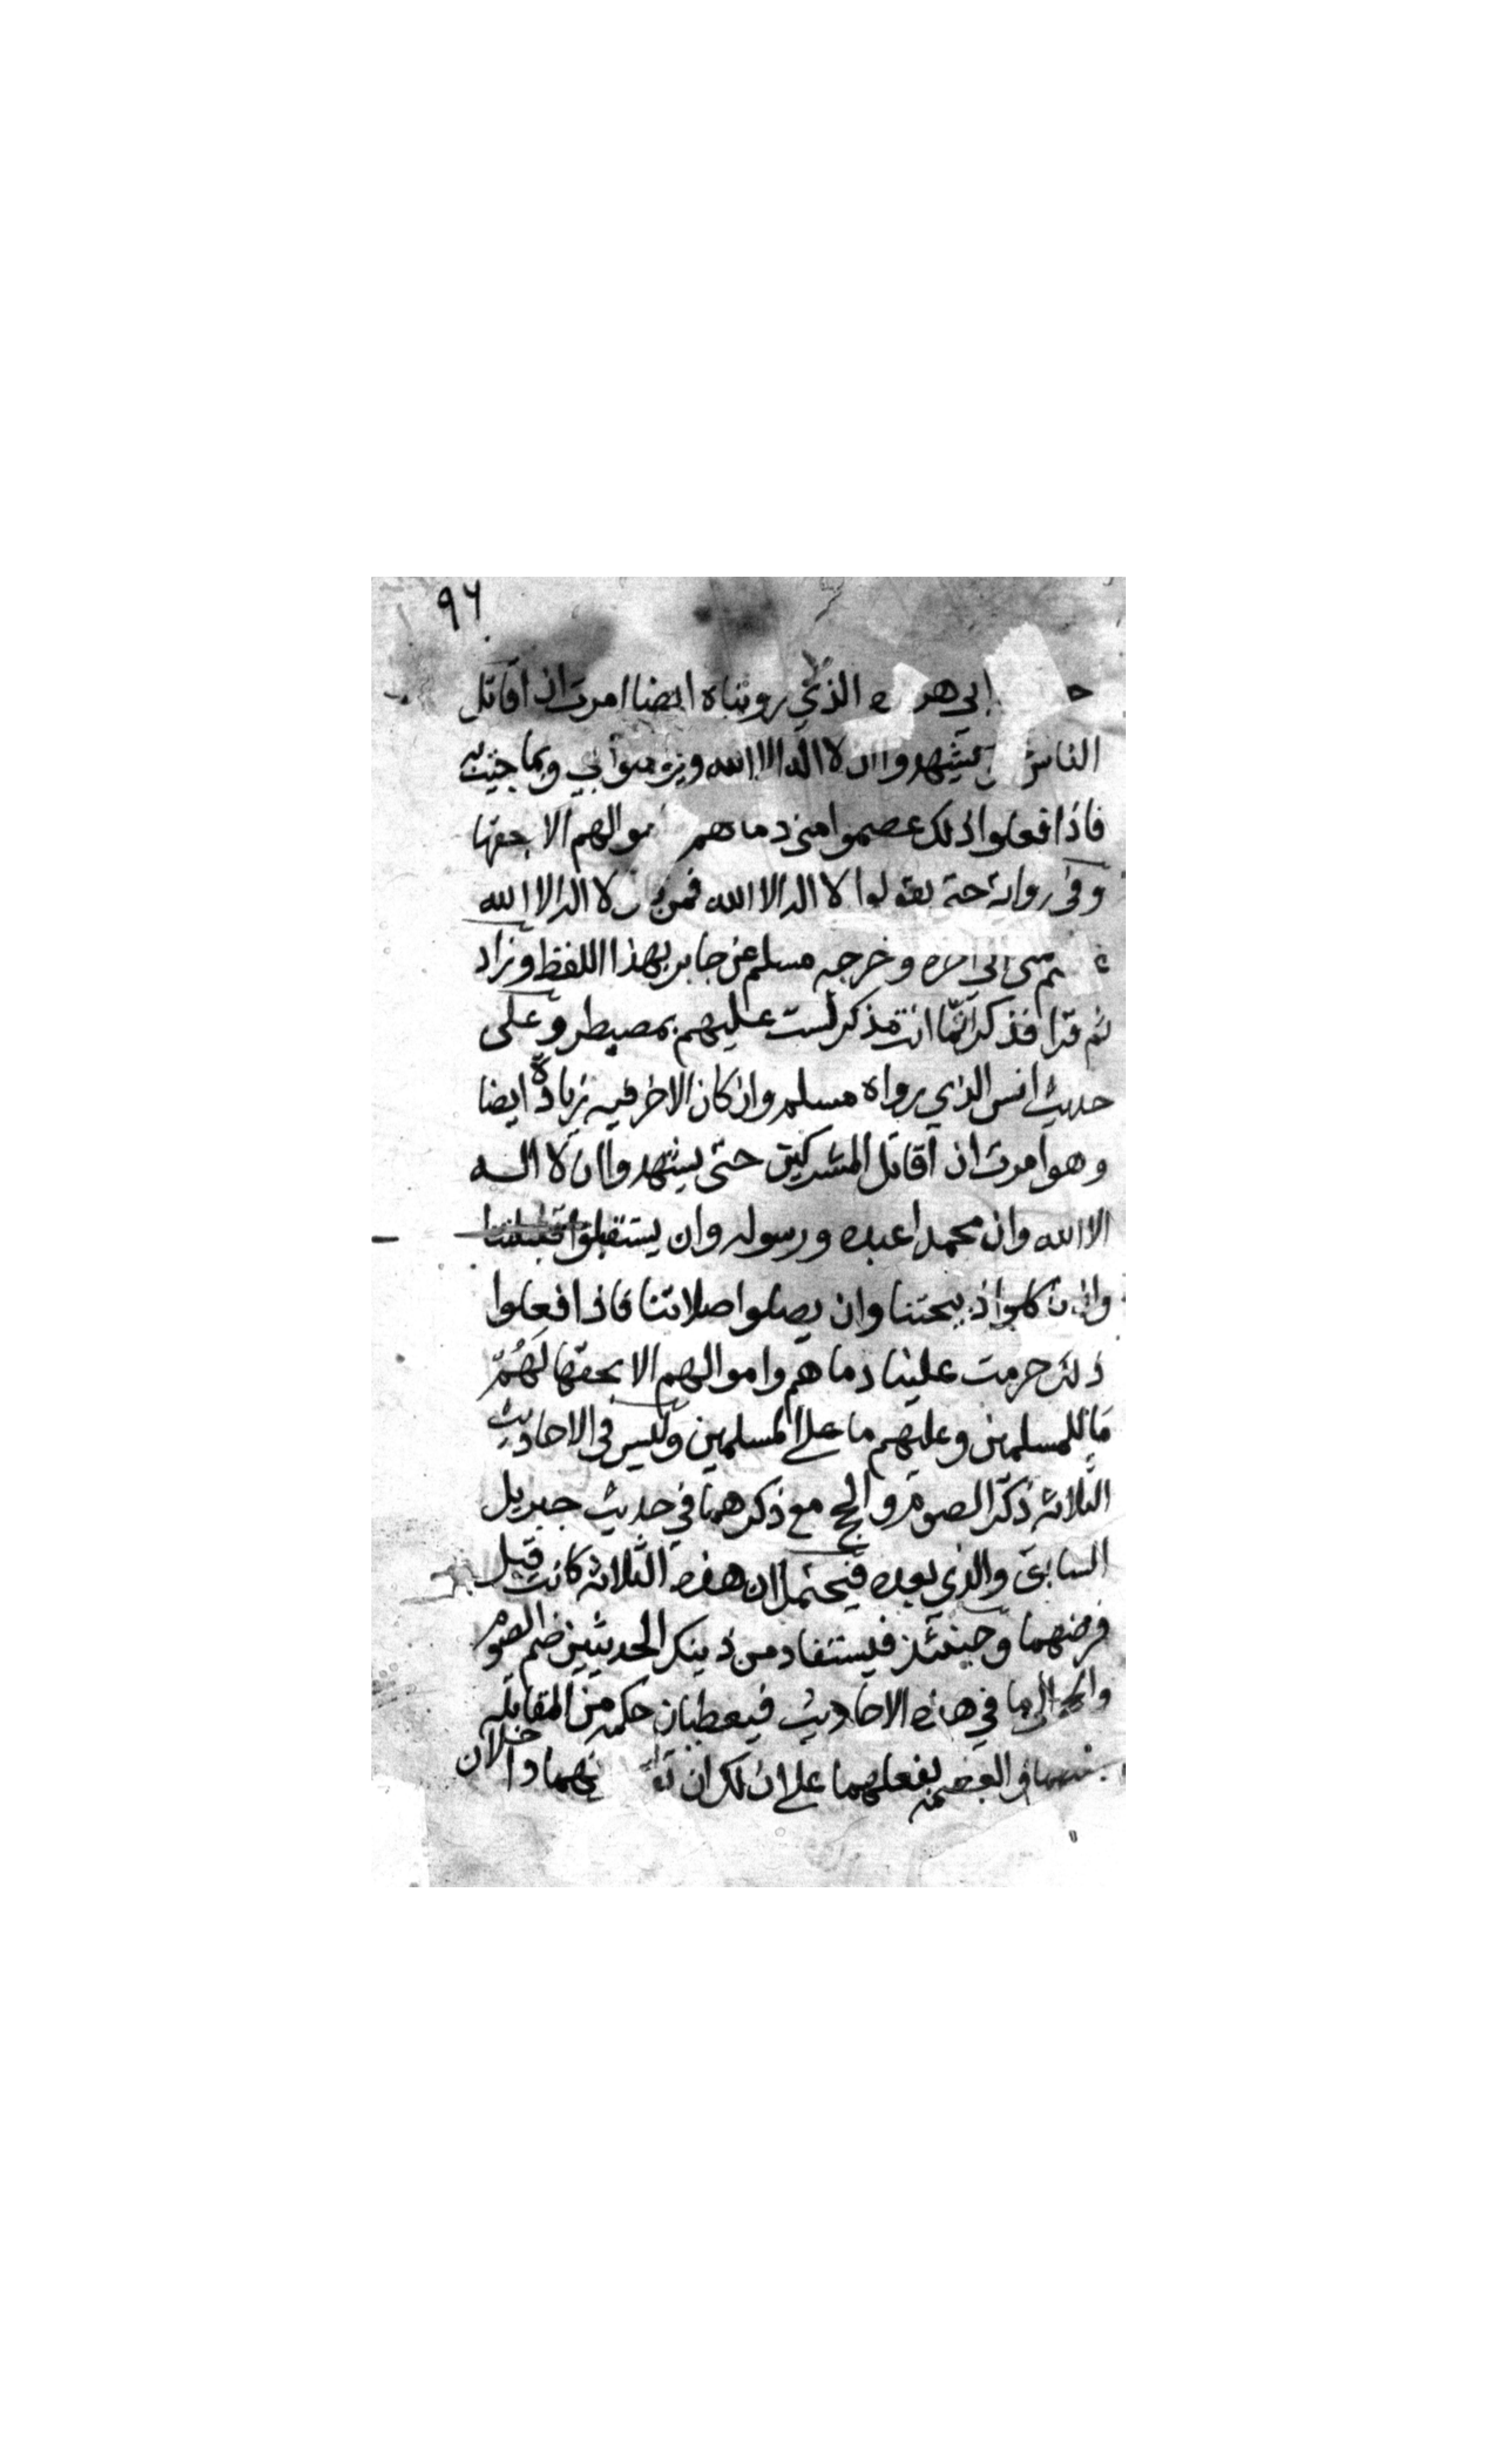 ٩٦
ابي الذي رويناه ايضا امرت ان اقاتل
الناس يشهدوا ان لا اله الا الله ويؤمنوا بي وبما جئت به
فاذا فعلوا ذلك عصموا مني دماهم موالهم الا بحقها
وفي رواية حتى يقولوا لا اله الا الله فمن قال لا اله الا الله
مني الى اخره وخرجه مسلم عن جابر بهذا اللفظ وزاد
ثم قرا فذكر انما انت مذكر لست عليهم بمصيطر وعلى
حديث انس الذي رواه مسلم وان كان الاخر فيه زيادة ايضا
وهو امرت ان اقاتل المشركين حتى يشهدوا ان لا اله
الا الله وان محمدا عبده ورسوله وان يستقبلوا قبلتنا
وان ياكلوا ذبيحتنا وان يصلوا صلاتنا فاذا فعلوا
ذلك حرمت علينا دماهم واموالهم الا بحقها لهم
ما للمسلمين وعليهم ما على المسلمين وليس في الاحاديث
الثلاثة ذكر الصوم والحج مع ذكرهما في حديث جبريل
السابق والذي بعده فيحتمل ان هذه الثلاثة كانت قبل
فرضهما وحينئذ فيستفاد من ذينك الحديثين ضم الصوم
والحج الى ما في هذه الاحاديث فيعطيان حكمه من المقاتلة
والعصمة بفعلهما على ان لك ان داخلان